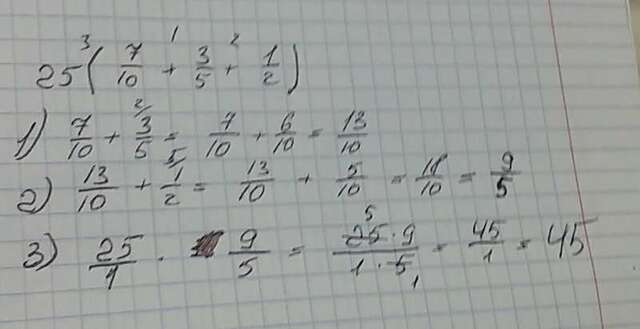 25 (7/10 + 3/5 + 1/2) 3 1 2
1) 7/10 + 3/5 2/ = 7/10 + 6/10 = 13/10
2) 13/10 + 1/2 5/ = 13/10 + 5/10 = 18/10 = 9/5
3) 25/1 · 9/5 = 25 · 9 / 1 · 5 5 1 = 45/1 = 45